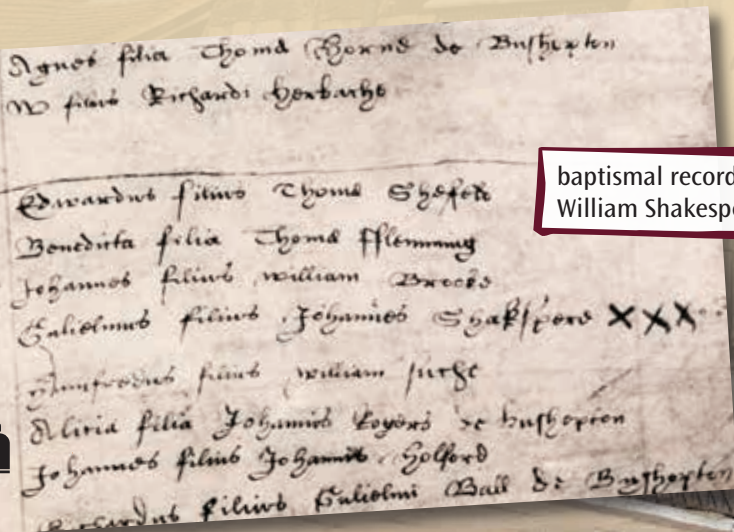 Agnes filia Thoma Horne de Bushopton
W filius Richardi Herbache
Edwardus filius Thoma Shefeld
Benedicta filia Thoma fflemmyng
Johannes filius william Brooke
Gulielmus filius Johannes Shakspere XXX
filius william
Alicia filia Johannis Rogers de bushopton
Johannes filius Johannis Holford
Richardus filius Gulielmi Ball de Bushopton
baptismal record
William Shakespe